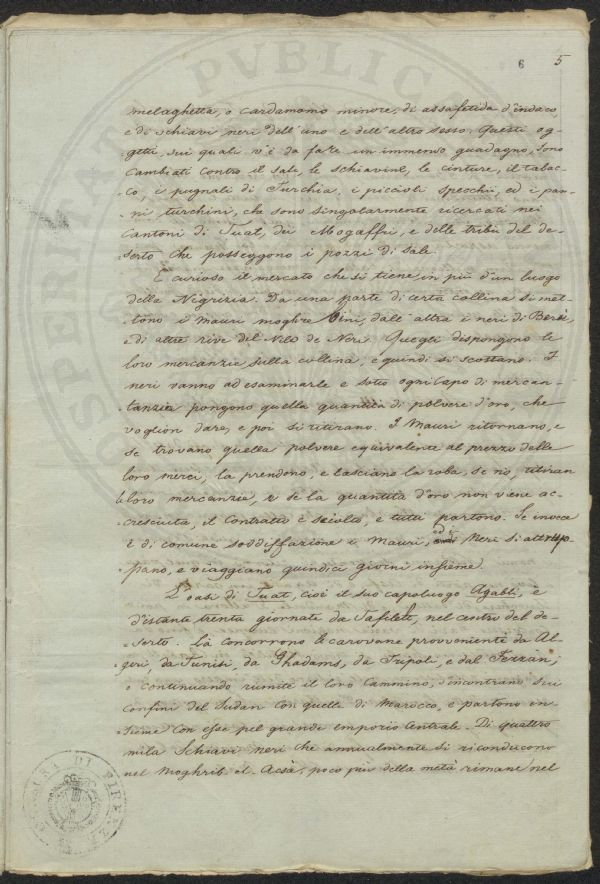 6 5
melaghetta, o cardamomo minore, di assafetida d'indaco,
e di schiavi neri dell'uno e dell'altro sesso. Questi og-
getti, sui quali v'è da fare un immenso guadagno, sono
cambiati contro il sale, le schiavine, le cinture, il tabac-
co, i pugnali di Turchia, i piccioli specchi, ed i pan-
ni turchini, che sono singolarmente ricercati nei
Cantoni di Tuat, dei Mogaffri, e delle tribù del de-
serto che posseggono i pozzi di sale.
È curioso il mercato che si tiene in più d'un luogo
della Nigrizia. Da una parte di certa collina si met-
tono i Mauri moghre dall'altra i neri di
e di altre rive del Nilo de Neri. Quegli dispongono le
loro mercanzie sulla collina, e quindi si scostano. I
neri vanno ad esaminarle e sotto ogni capo di mercan-
tanzia pongono quella quantità di polvere d'oro, che
voglion dare, e poi si ritirano. I Mauri ritornano, e
se trovano quella polvere equivalente al prezzo delle
loro merci, la prendono, e lasciano la roba, se no, ritiran
le loro mercanzie, e se la quantità d'oro non viene ac-
cresciuta, il Contratto è sciolto, e tutti partono. Se invece
è di comune soddisfazione i Mauri, ed i Neri si attrup-
pano, e viaggiano quindici giorni insieme.
L'oasi di Tuat, cioè il suo capoluogo Agabli, è
distante trenta giornate da Tafilelt, nel centro del de-
serto. Là concorrono le carovane provenienti da Al-
geri, da Tunisi, da Ghadams, da Tripoli, e dal Fezzan;
e continuando riunite il loro Cammino, s'incontrano sui
confini del Sudan con quelle di Marocco, e partono in-
sieme con esse pel grande emporio Centrale. Di quattro
mila Schiavi neri che annualmente si riconducono
nel Moghrib el Acsà, poco più della metà rimane nel